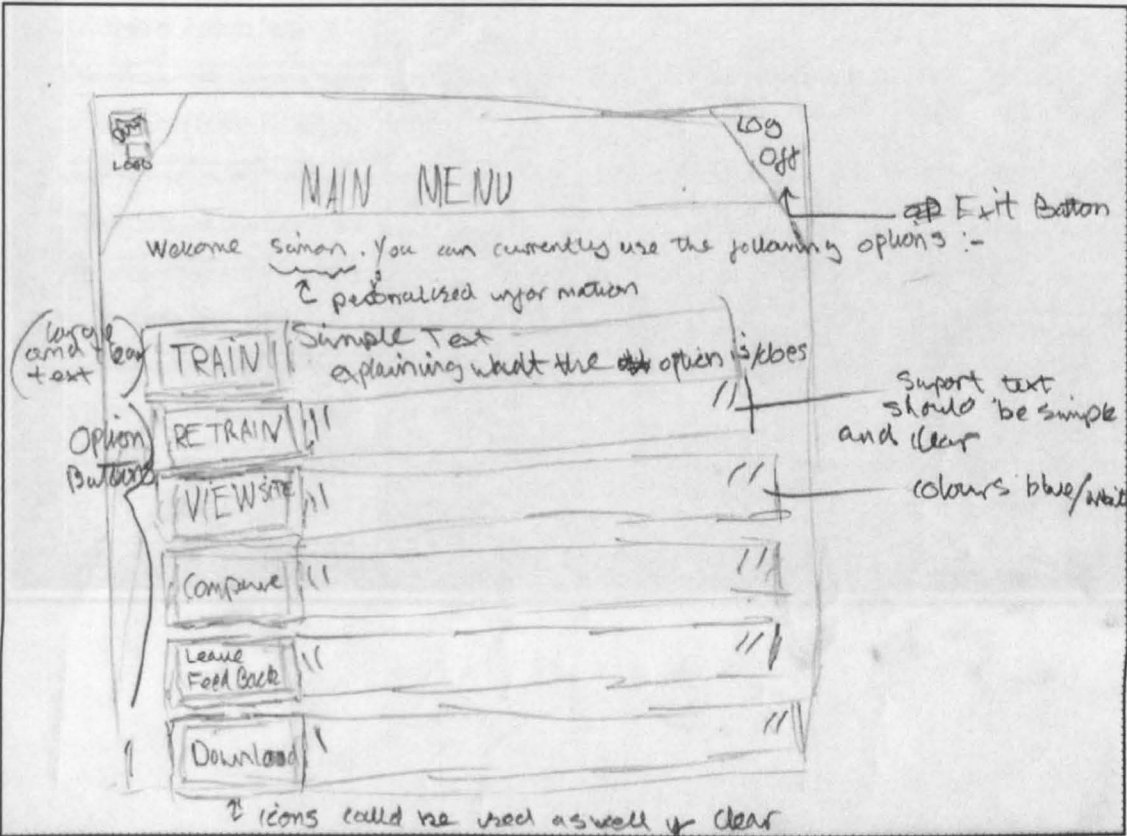 LOGO
Log
Off
MAIN MENU
Exit Button
Welcome Simon. You can currently use the following options :-
personalised information
large
and clear
text
TRAIN
Simple Text
explaining what the option is/does
Suport text
should be simple
and clear
Option
Buttons
RETRAIN
VIEW SITE
colours blue/white
Compare
Leave
Feed Back
Download
icons could be used as well if clear